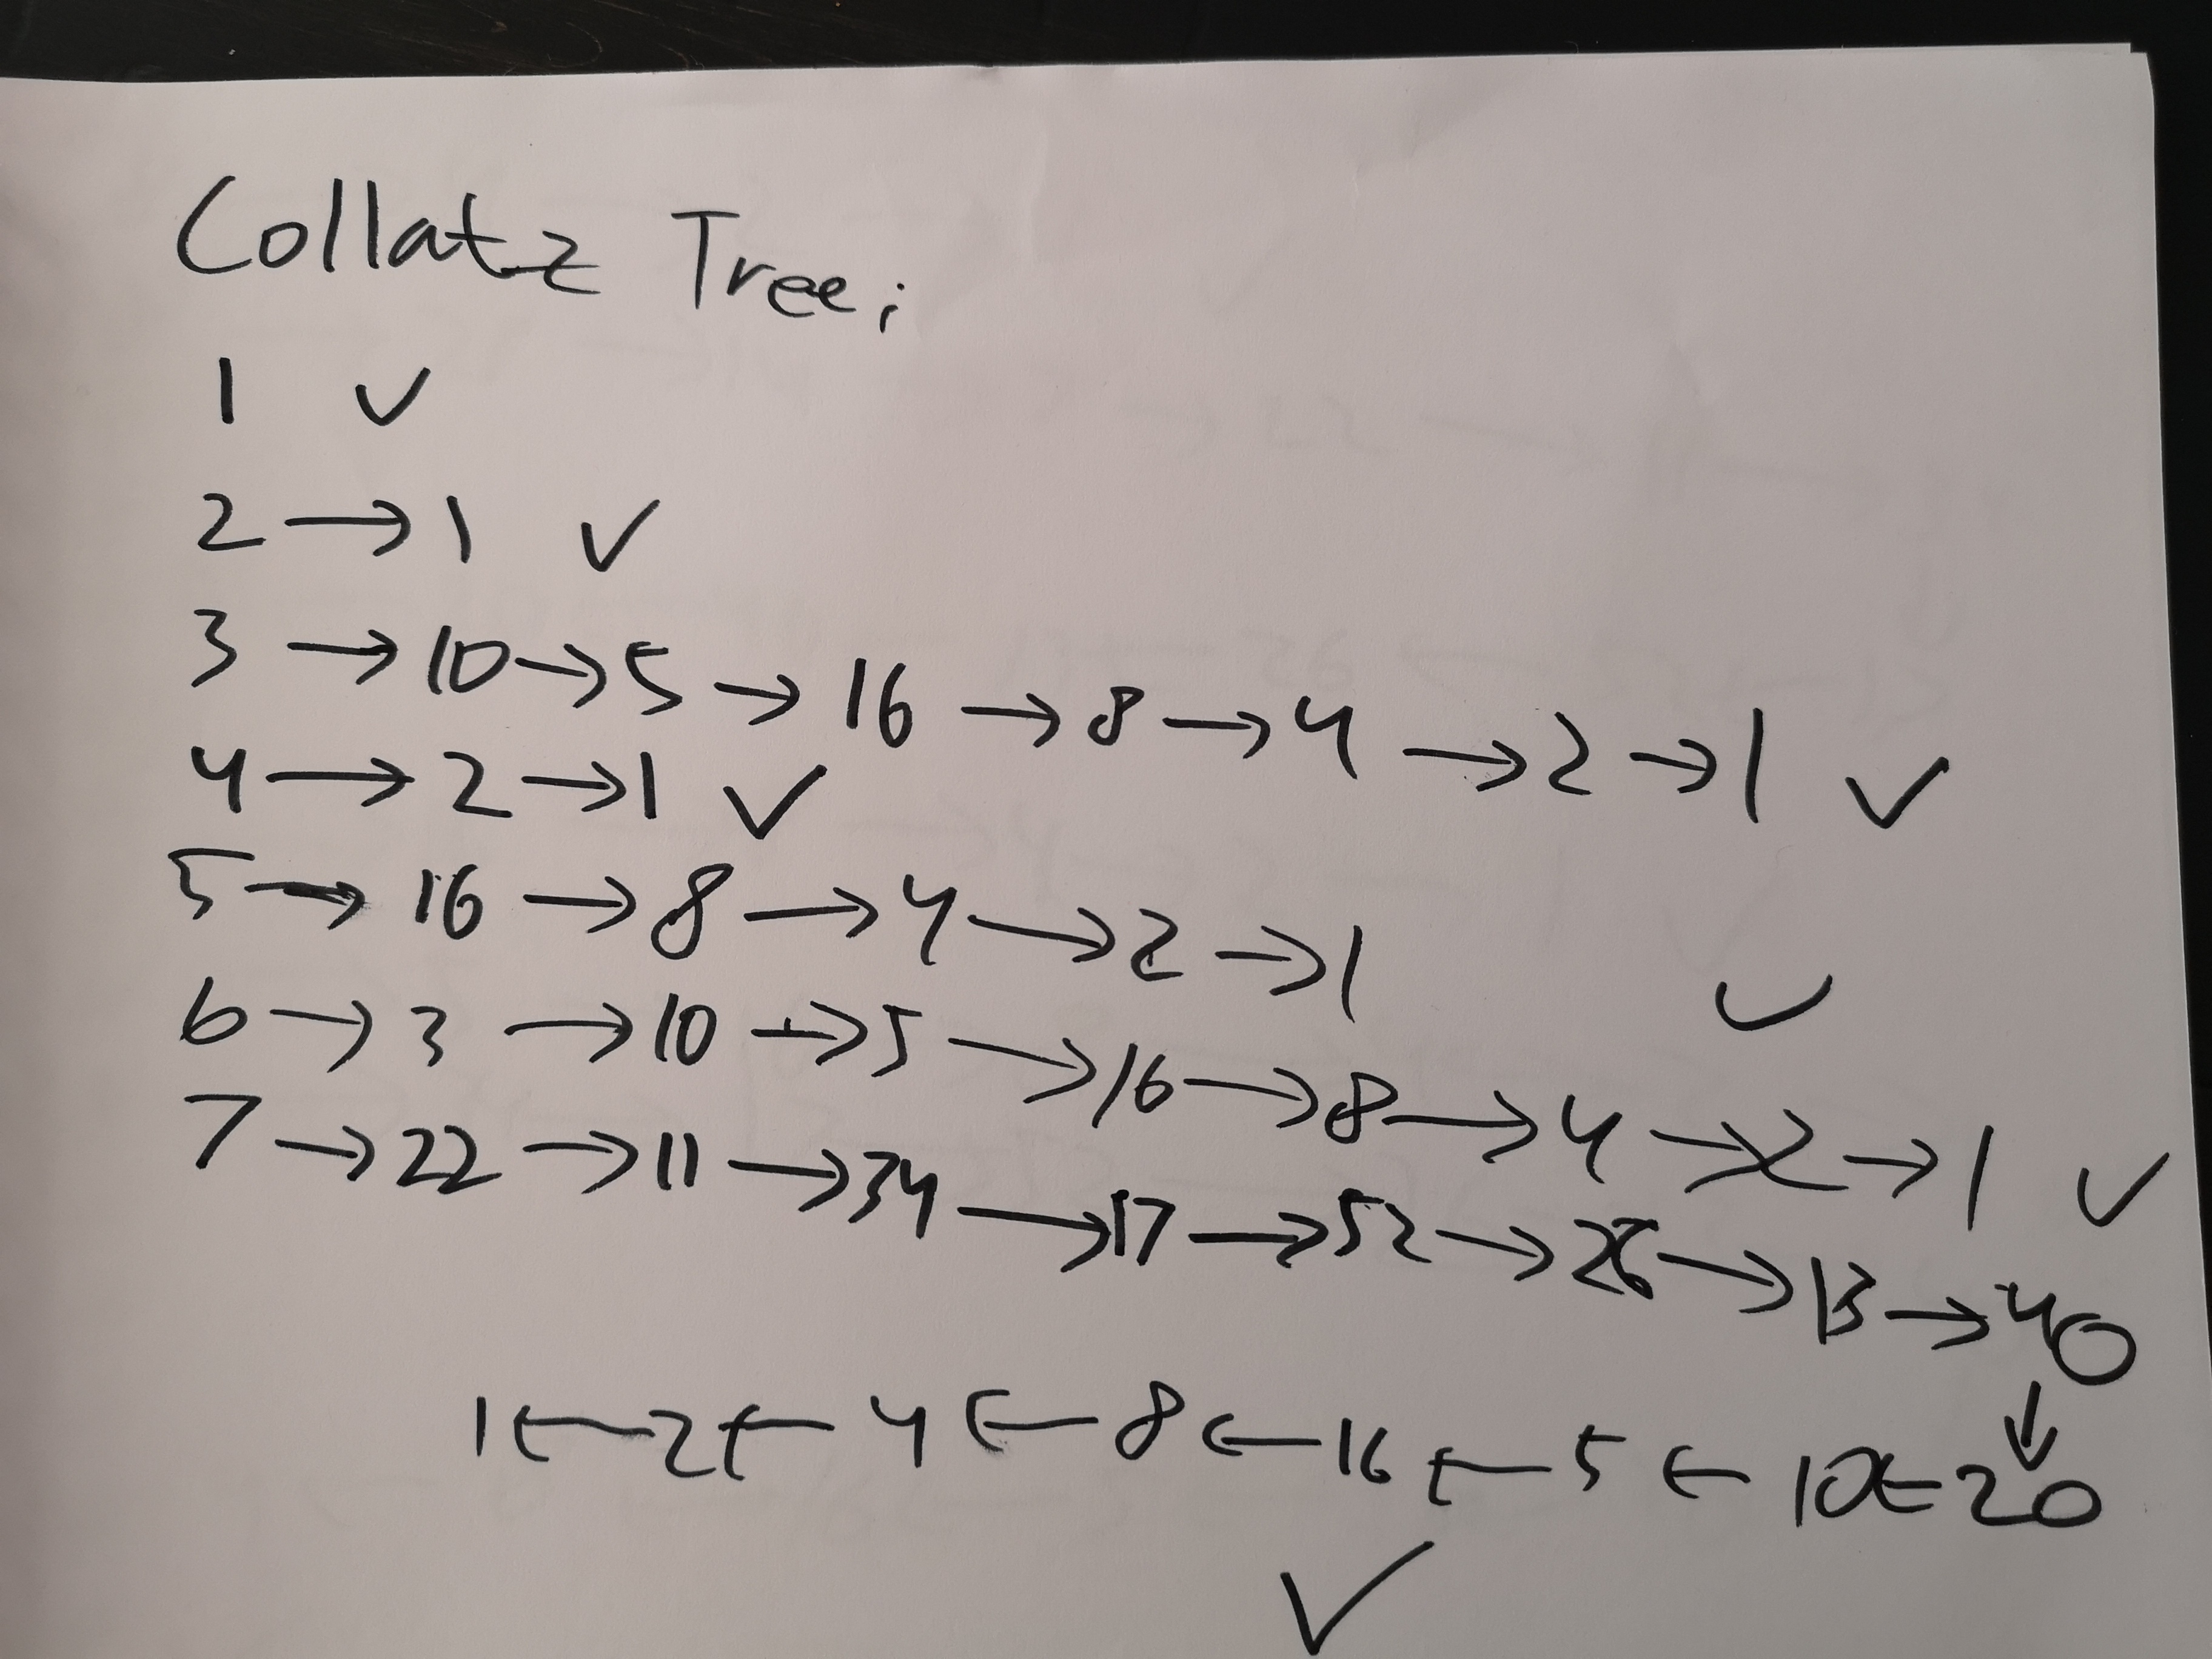 Collatz Tree;
1 ✓
2 → 1 ✓
3 → 10 → 5 → 16 → 8 → 4 → 2 → 1 ✓
4 → 2 → 1 ✓
5 → 16 → 8 → 4 → 2 → 1 ✓
6 → 3 → 10 → 5 → 16 → 8 → 4 → 2 → 1 ✓
7 → 22 → 11 → 34 → 17 → 52 → 26 → 13 → 40
↓
1 ← 2 ← 4 ← 8 ← 16 ← 5 ← 10 ← 20
✓